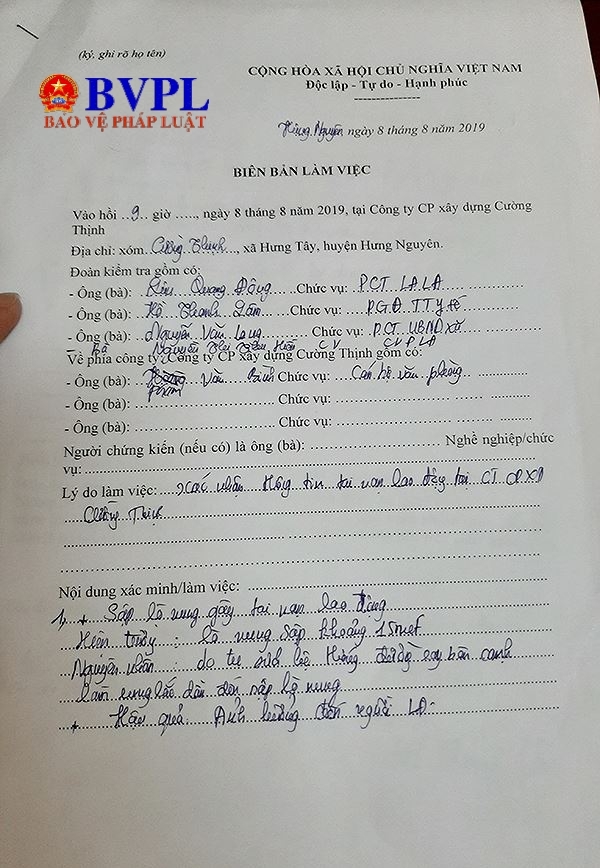 (ký, ghi rõ họ tên)
BVPL
BẢO VỆ PHÁP LUẬT
CỘNG HÒA XÃ HỘI CHỦ NGHĨA VIỆT NAM
Độc lập - Tự do - Hạnh phúc
Hưng Nguyên ngày 8 tháng 8 năm 2019
BIÊN BẢN LÀM VIỆC
Vào hồi ..9.. giờ ....., ngày 8 tháng 8 năm 2019, tại Công ty CP xây dựng Cường
Thịnh
Địa chỉ: xóm Cường Thịnh, xã Hưng Tây, huyện Hưng Nguyên.
Đoàn kiểm tra gồm có:
- Ông (bà): Quang Chức vụ: PCT
- Ông (bà): Hồ Thanh Chức vụ: P.G.Đ TTY tế
- Ông (bà): Nguyễn Văn Long Chức vụ: PCT UBND xã
- Bà Nguyễn Thị Hiền CV
Về phía công ty: Công ty CP xây dựng Cường Thịnh gồm có:
- Ông (bà): Phạm Văn Bình Chức vụ: Cán bộ văn phòng
- Ông (bà): Chức vụ:
- Ông (bà): Chức vụ:
Người chứng kiến (nếu có) là ông (bà): Nghề nghiệp/chức
vụ:
Lý do làm việc: xác nhận thông tin tai nạn lao động tại CT CPXD
Cường Thịnh
Nội dung xác minh/làm việc:
1, + Sập lò nung gây tai nạn lao động
Hiện trường: lò nung sập khoảng 15 mét
Nguyên nhân: do xe bên cạnh
làm rung lắc dẫn đến sập lò nung
+ Hậu quả: Ảnh hưởng đến người LĐ.